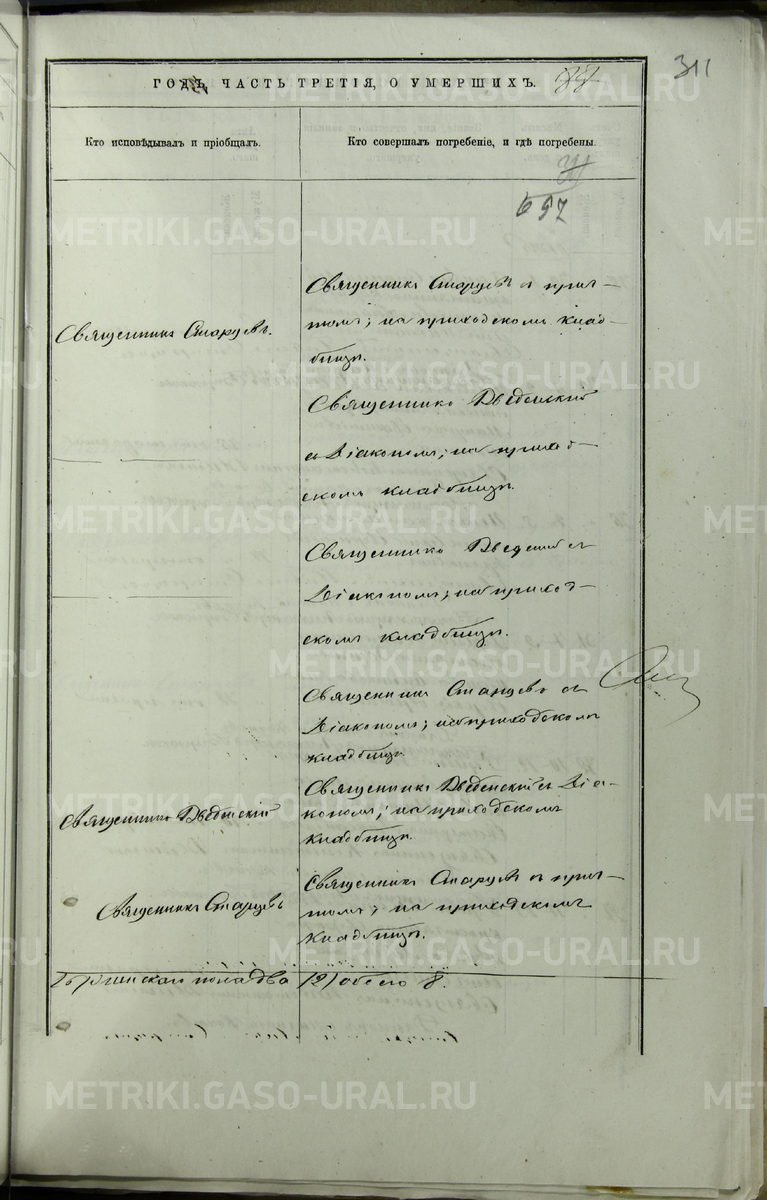 311
ГОДЪ, ЧАСТЬ ТРЕТІЯ, О УМЕРШИХЪ.
Кто исповѣдывалъ и пріобщалъ.
Кто совершалъ погребеніе, и гдѣ погребены.
657
Священникъ Старцевъ.
Священникъ Старцевъ съ прич-
томъ; на приходскомъ клад-
бищѣ.
Священникъ Введенскій
съ Діакономъ; на приход-
скомъ кладбищѣ.
Священникъ
Діакономъ; на приход-
скомъ кладбищѣ.
Священникъ Старцевъ съ
Діакономъ; на приходскомъ
кладбищѣ.
Священникъ Введенскій
Священникъ Введенскій съ Діа-
кономъ; на приходскомъ
кладбищѣ.
Священникъ Старцевъ
Священникъ Старцевъ съ прич-
томъ; на приходскомъ
кладбищѣ.
пола два (2) обоего 8.
METRIKI.GASO-URAL.RU